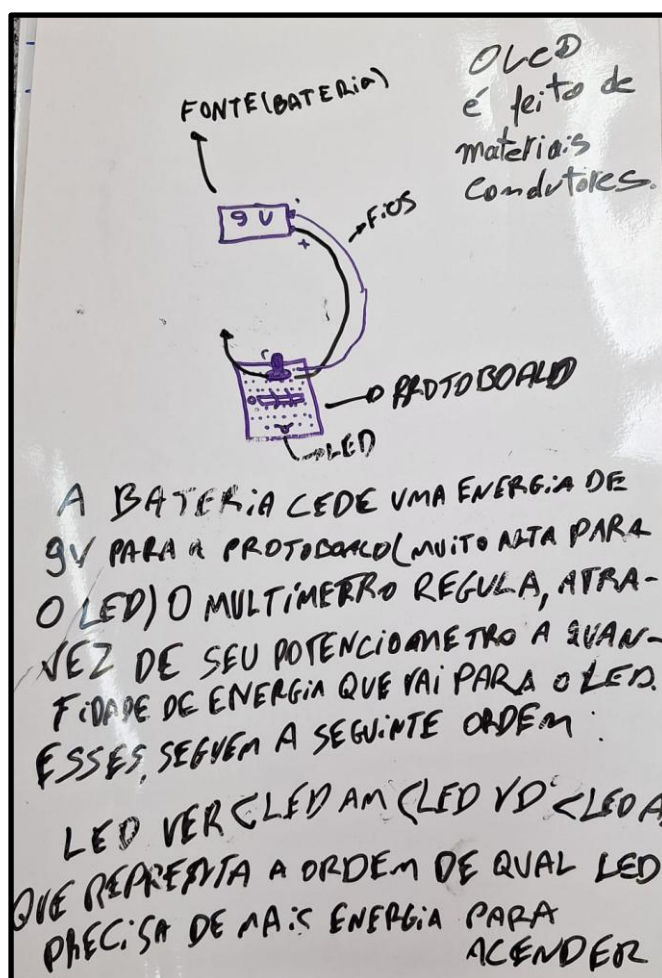 O LED
é feito de
materiais
condutores.
FONTE(BATERIA)
9 V
+
FIOS
PROTOBOARD
LED
A BATERIA CEDE UMA ENERGIA DE
9V PARA A PROTOBOARD(MUITO ALTA PARA
O LED) O MULTÍMERRO REGULA, ATRA-
VEZ DE SEU POTENCIOMETRO A QUAN-
TIDADE DE ENERGIA QUE VAI PARA O LED.
ESSES, SEGUEM A SEGUINTE ORDEM:
LED VER < LED AM < LED VD < LED A
QUE REPRENTA A ORDEM DE QUAL LED
PRECISA DE MAIS ENERGIA PARA
ACENDER